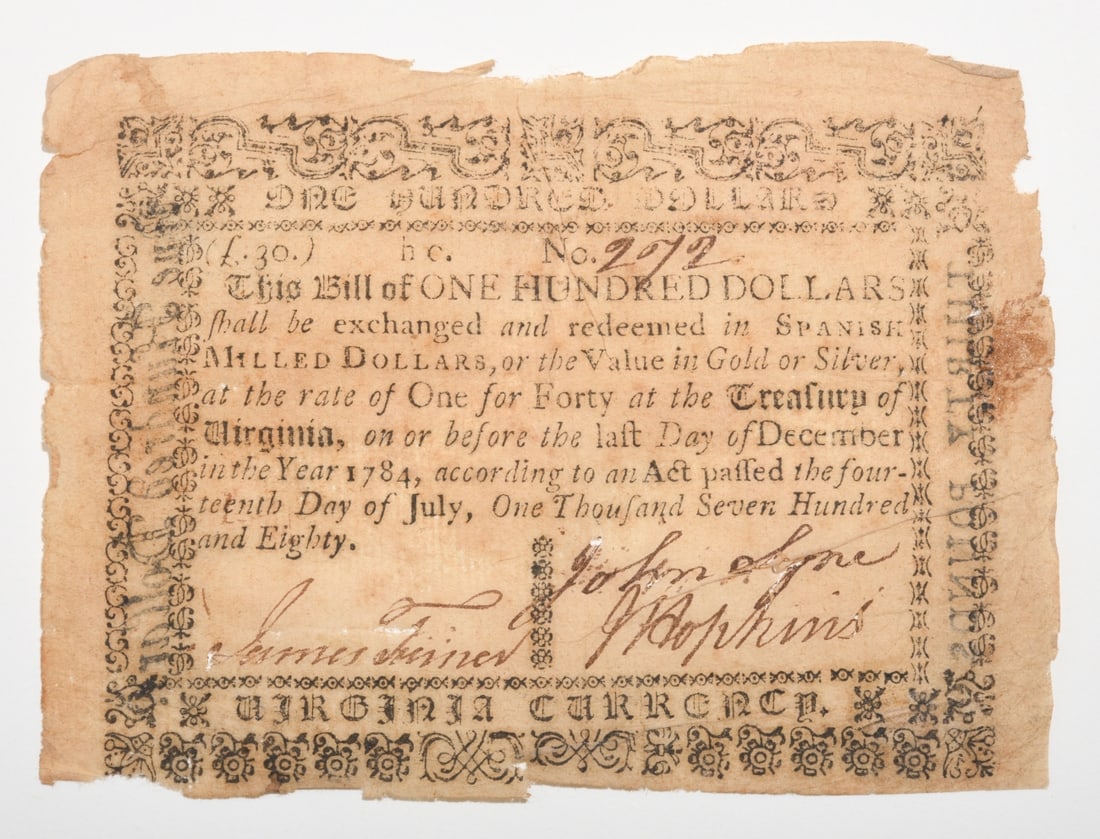 ONE HUNDRED DOLLARS
(£.30.) h c. No. 2072
This Bill of ONE HUNDRED DOLLARS
ſhall be exchanged and redeemed in SPANISH
MILLED DOLLARS, or the Value in Gold or Silver,
at the rate of One for Forty at the Treaſury of
Virginia, on or before the laſt Day of December
in the Year 1784, according to an Act paſſed the four-
teenth Day of July, One Thouſand Seven Hundred
and Eighty.
John Lyne
James Turner
J Hopkins
VIRGINIA CURRENCY.
THIRTY POUNDS